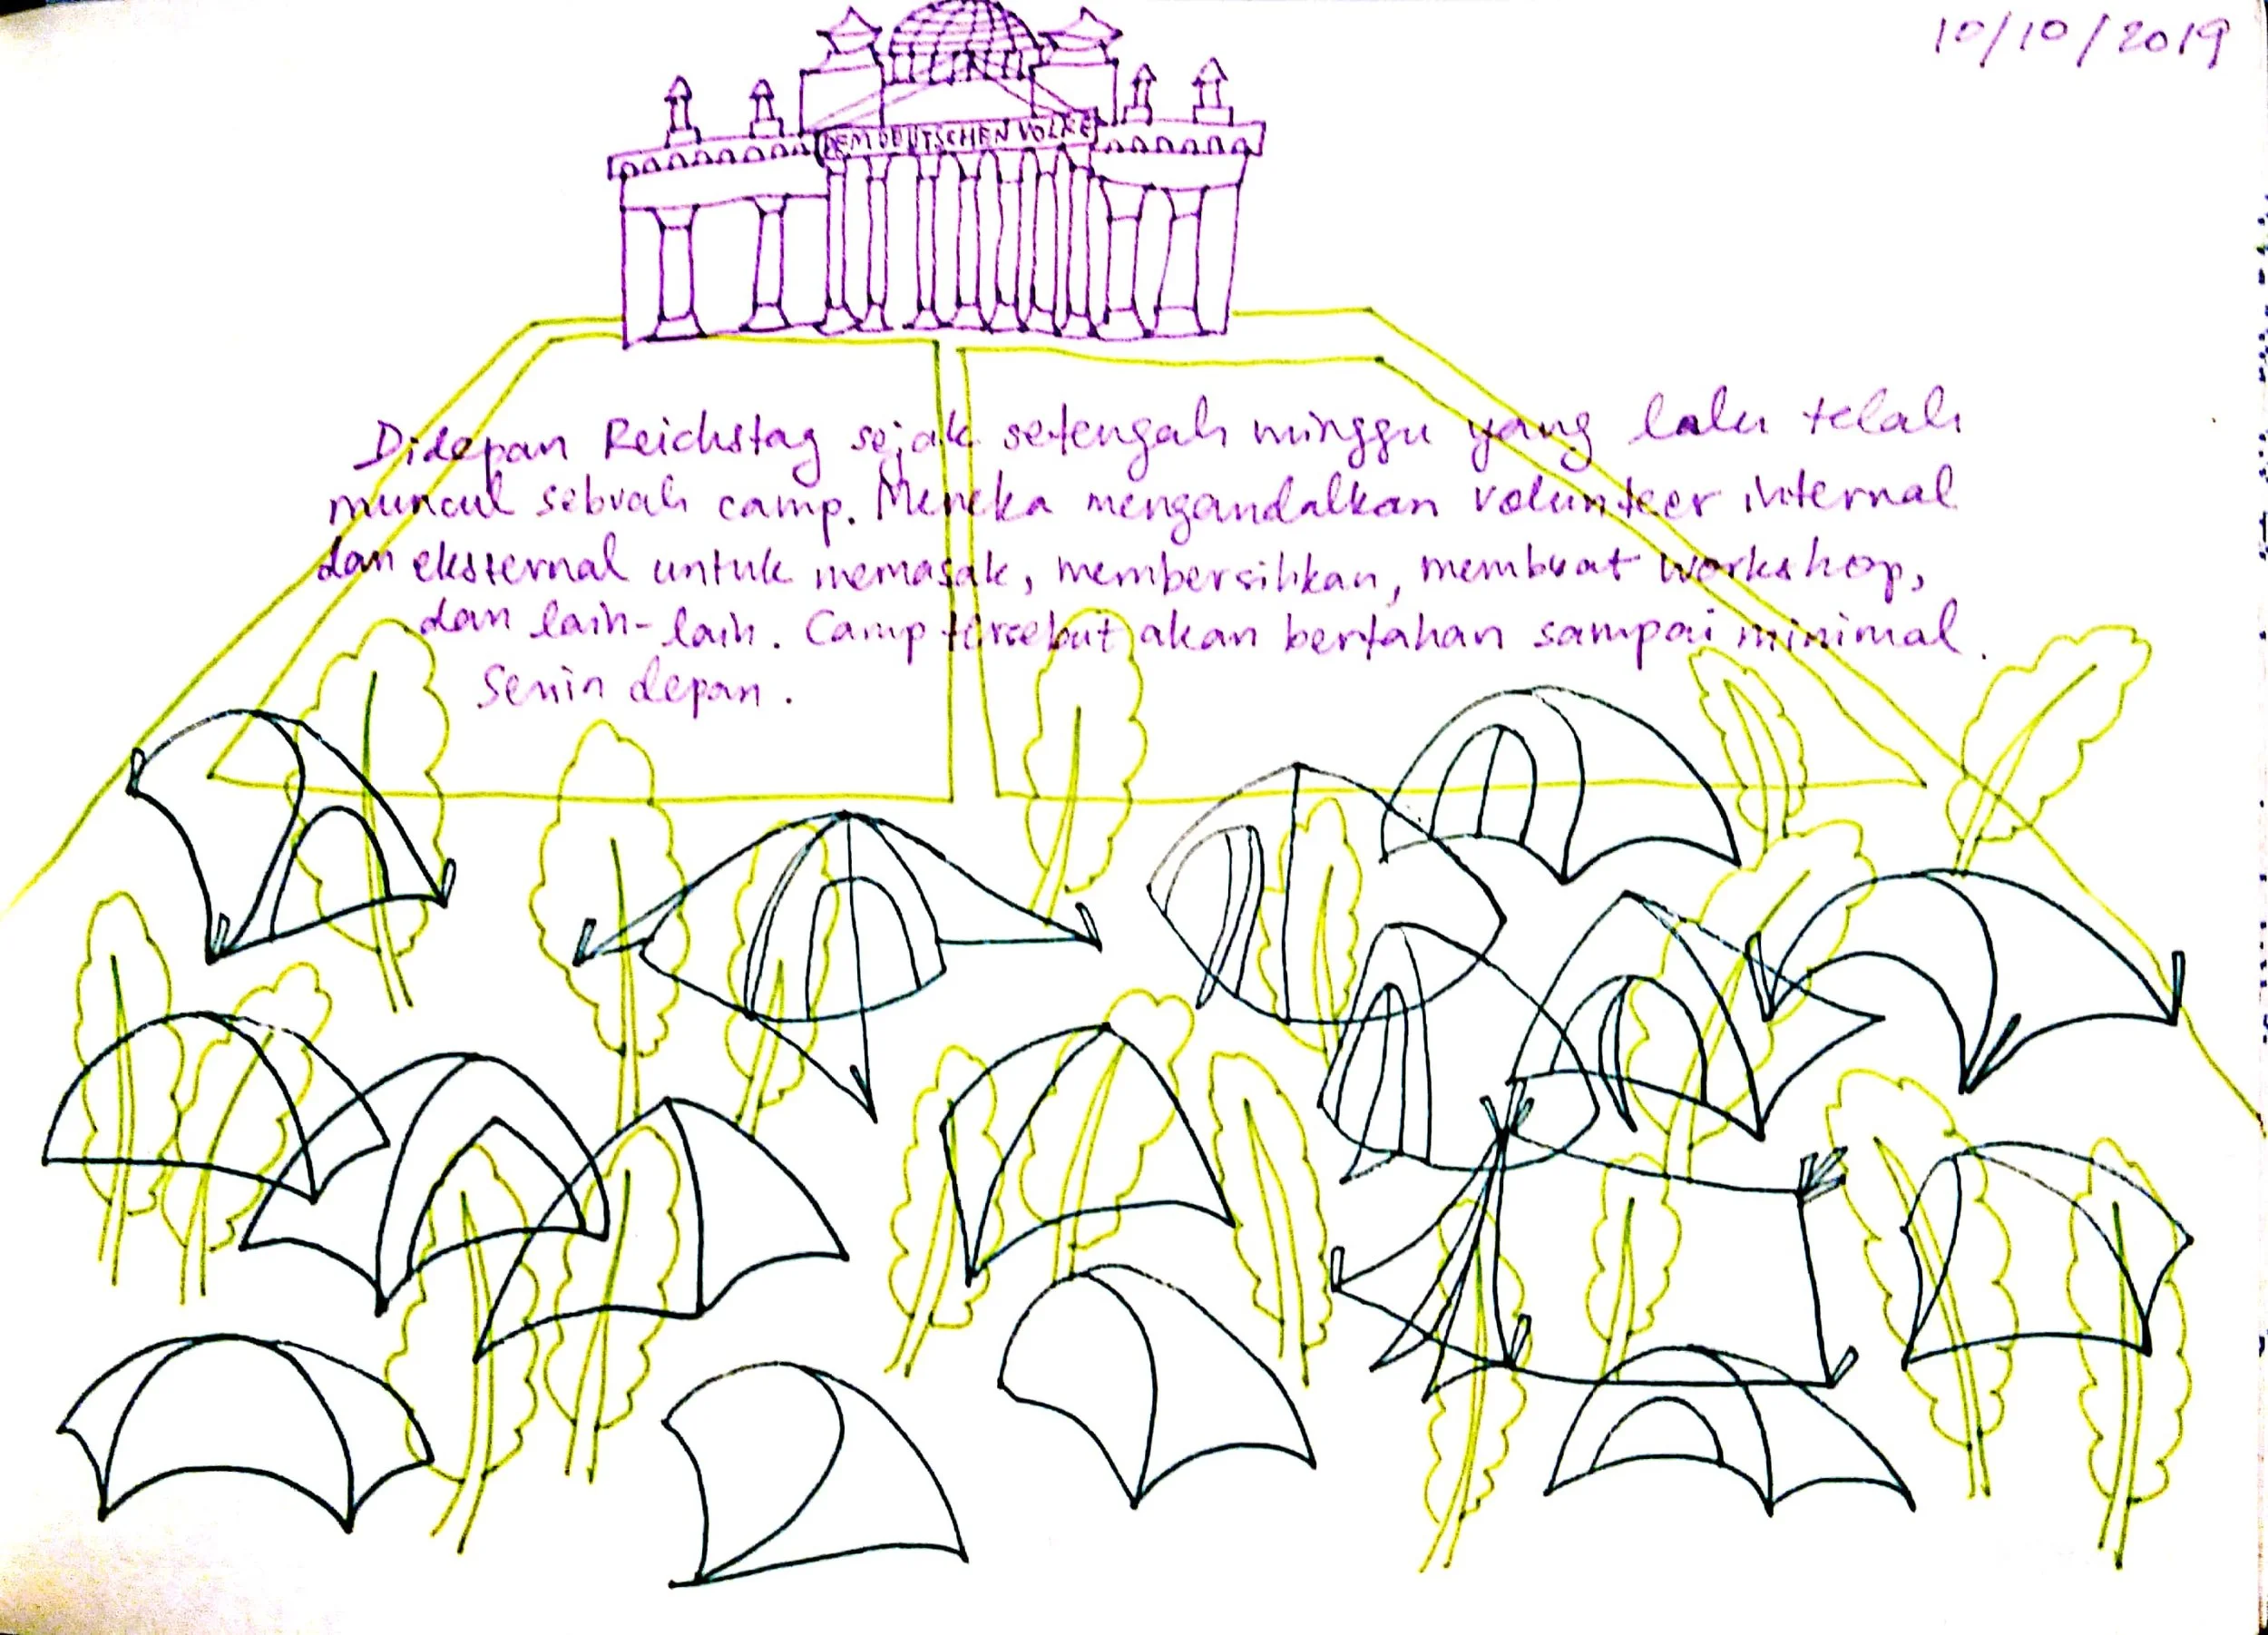 10/10/2019
DEM DEUTSCHEN VOLKE
Didepan Reichstag sejak setengah minggu yang lalu telah
muncul sebuah camp. Mereka mengandalkan volunteer internal
dan eksternal untuk memasak, membersihkan, membuat workshop,
dan lain-lain. Camp tersebut akan bertahan sampai minimal
Senin depan.